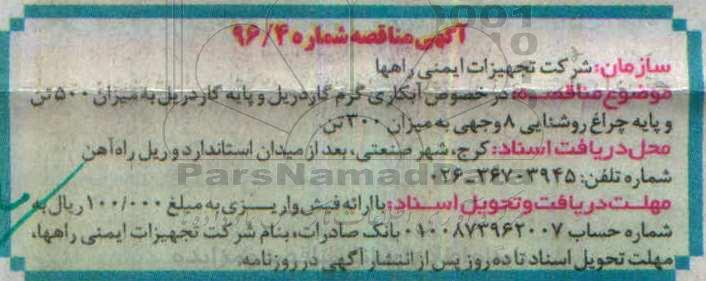 آگهی مناقصه شماره ۹۶/۴
سازمان: شرکت تجهیزات ایمنی راهها
موضوع مناقصه: در خصوص آبکاری گرم گاردریل و پایه گاردریل به میزان ۵۰۰ تن
و پایه چراغ روشنایی ۸ وجهی به میزان ۳۰۰ تن
محل دریافت اسناد: کرج، شهر صنعتی، بعد از میدان استاندارد و ریل راه آهن
شماره تلفن: ۳۶۷۰۳۹۴۵-۰۲۶
مهلت دریافت و تحویل اسناد: با ارائه فیش واریزی به مبلغ ۱۰۰/۰۰۰ ریال به
شماره حساب ۰۱۰۰۸۷۳۹۶۲۰۰۷ بانک صادرات، بنام شرکت تجهیزات ایمنی راهها،
مهلت تحویل اسناد تا ده روز پس از انتشار آگهی در روزنامه.
ParsNamadData